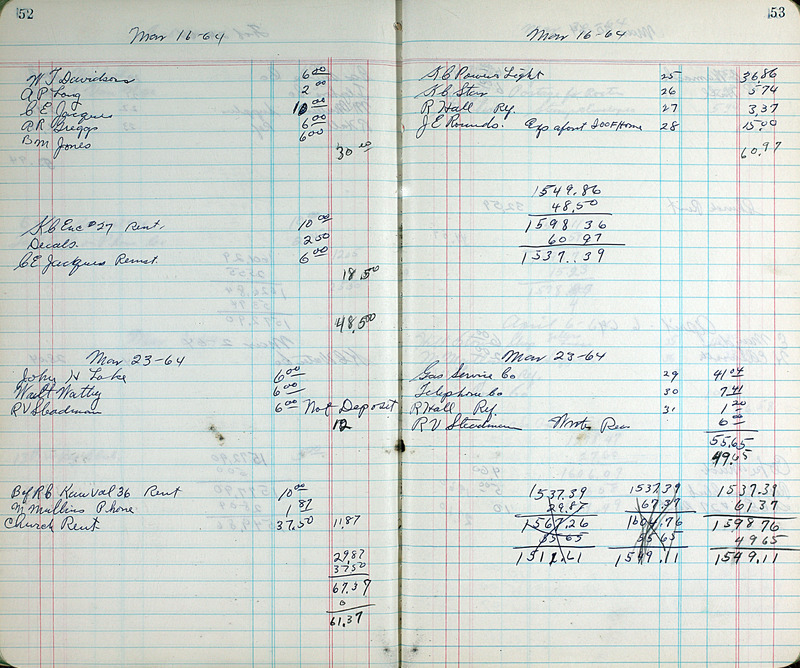 52
Mar 16-64
W T Davidson 6 00
A P Long 2 00
C E Jacques 10 00
A R Greggs 6 00
B M Jones 6 00
30 00
K C Enc #27 Rent. 10 00
Decals 2 50
C E Jacques Remit. 6 00
18.50
48.50
Mar 23-64
John H Lake 6 00
Walt Wathy 6 00
R V Steadman 6 00 Not Deposit
12
B of R B Kaw Val 36 Rent 10 00
M Mullins Phone 1 87
Church Rent 37.50 11.87
29.87
37.50
67.37
6
61.37
53
Mar 16-64
K C Power & Light 25 36.86
K C Star 26 5 74
R Hall Ref. 27 3.37
J E Rounds. Exp apart IOOF Home 28 15.00
60.97
1549.86
48.50
1598 36
60 97
1537.39
Mar 23-64
Gas Service Co 29 41 04
Telephone Co 30 7 41
R Hall Ref. 31 1 20
R V Steadman 6 00
55.65
49.65
1537.39 1537.39 1537.39
29.87 67.37 61 37
1567.26 1604.76 1598 76
55 65 55 65 49 65
1511.61 1549.11 1549.11